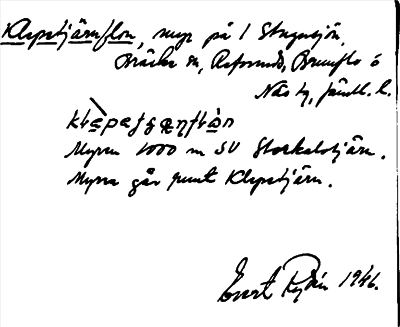 Klepstjärnflon, myr på 1 Stugusjön,
Bräcke sn, Refsunds, Brunflo o
Näs tg, Jämtl. l.
Myren 1000 m SV Storkalstjärn.
Myren går runt Klepstjärn.
Evert Rydén 1946.